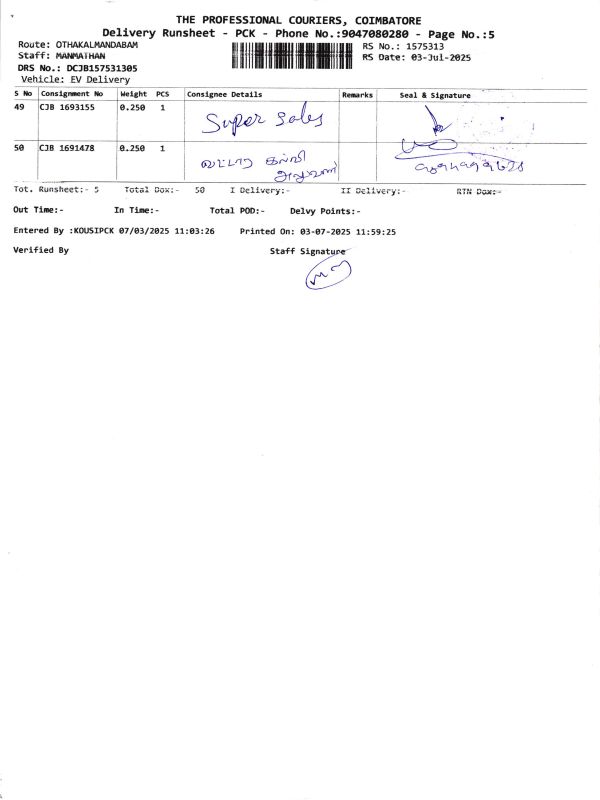 THE PROFESSIONAL COURIERS, COIMBATORE
Delivery Runsheet - PCK - Phone No.:9047080280 - Page No.:5
Route: OTHAKALMANDABAM RS No.: 1575313
Staff: MANMATHAN RS Date: 03-Jul-2025
DRS No.: DCJB157531305
Vehicle: EV Delivery
S No Consignment No Weight PCS Consignee Details Remarks Seal & Signature
49 CJB 1693155 0.250 1 Super Sales
50 CJB 1691478 0.250 1 வட்டார கல்வி
அலுவலர்
Tot. Runsheet:- 5 Total Dox:- 50 I Delivery:- II Delivery:- RTN Dox:-
Out Time:- In Time:- Total POD:- Delvy Points:-
Entered By :KOUSIPCK 07/03/2025 11:03:26 Printed On: 03-07-2025 11:59:25
Verified By Staff Signature